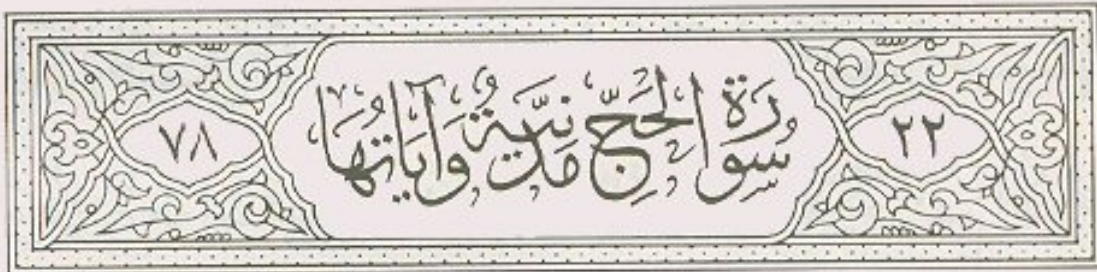 ٢٢
سُورَةُ الْحَجِّ مَدَنِيَّةٌ وَآيَاتُهَا
٧٨